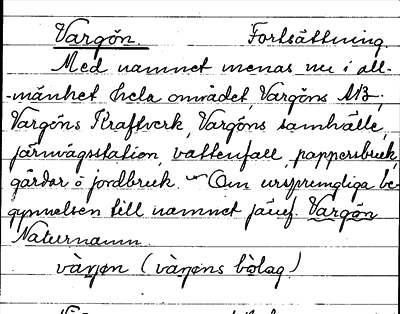 Vargön. Fortsättning
Med namnet menas nu i all-
-mänhet hela området, Vargöns AB,
Vargöns Kraftverk, Vargöns samhälle,
järnvägsstation, vattenfall, pappersbruk,
gårdar o jordbruk. Om ursprungliga be-
gynnelsen till namnet jämf. Vargön
Naturnamn
vàrjøn (vàrjøns bòlag)